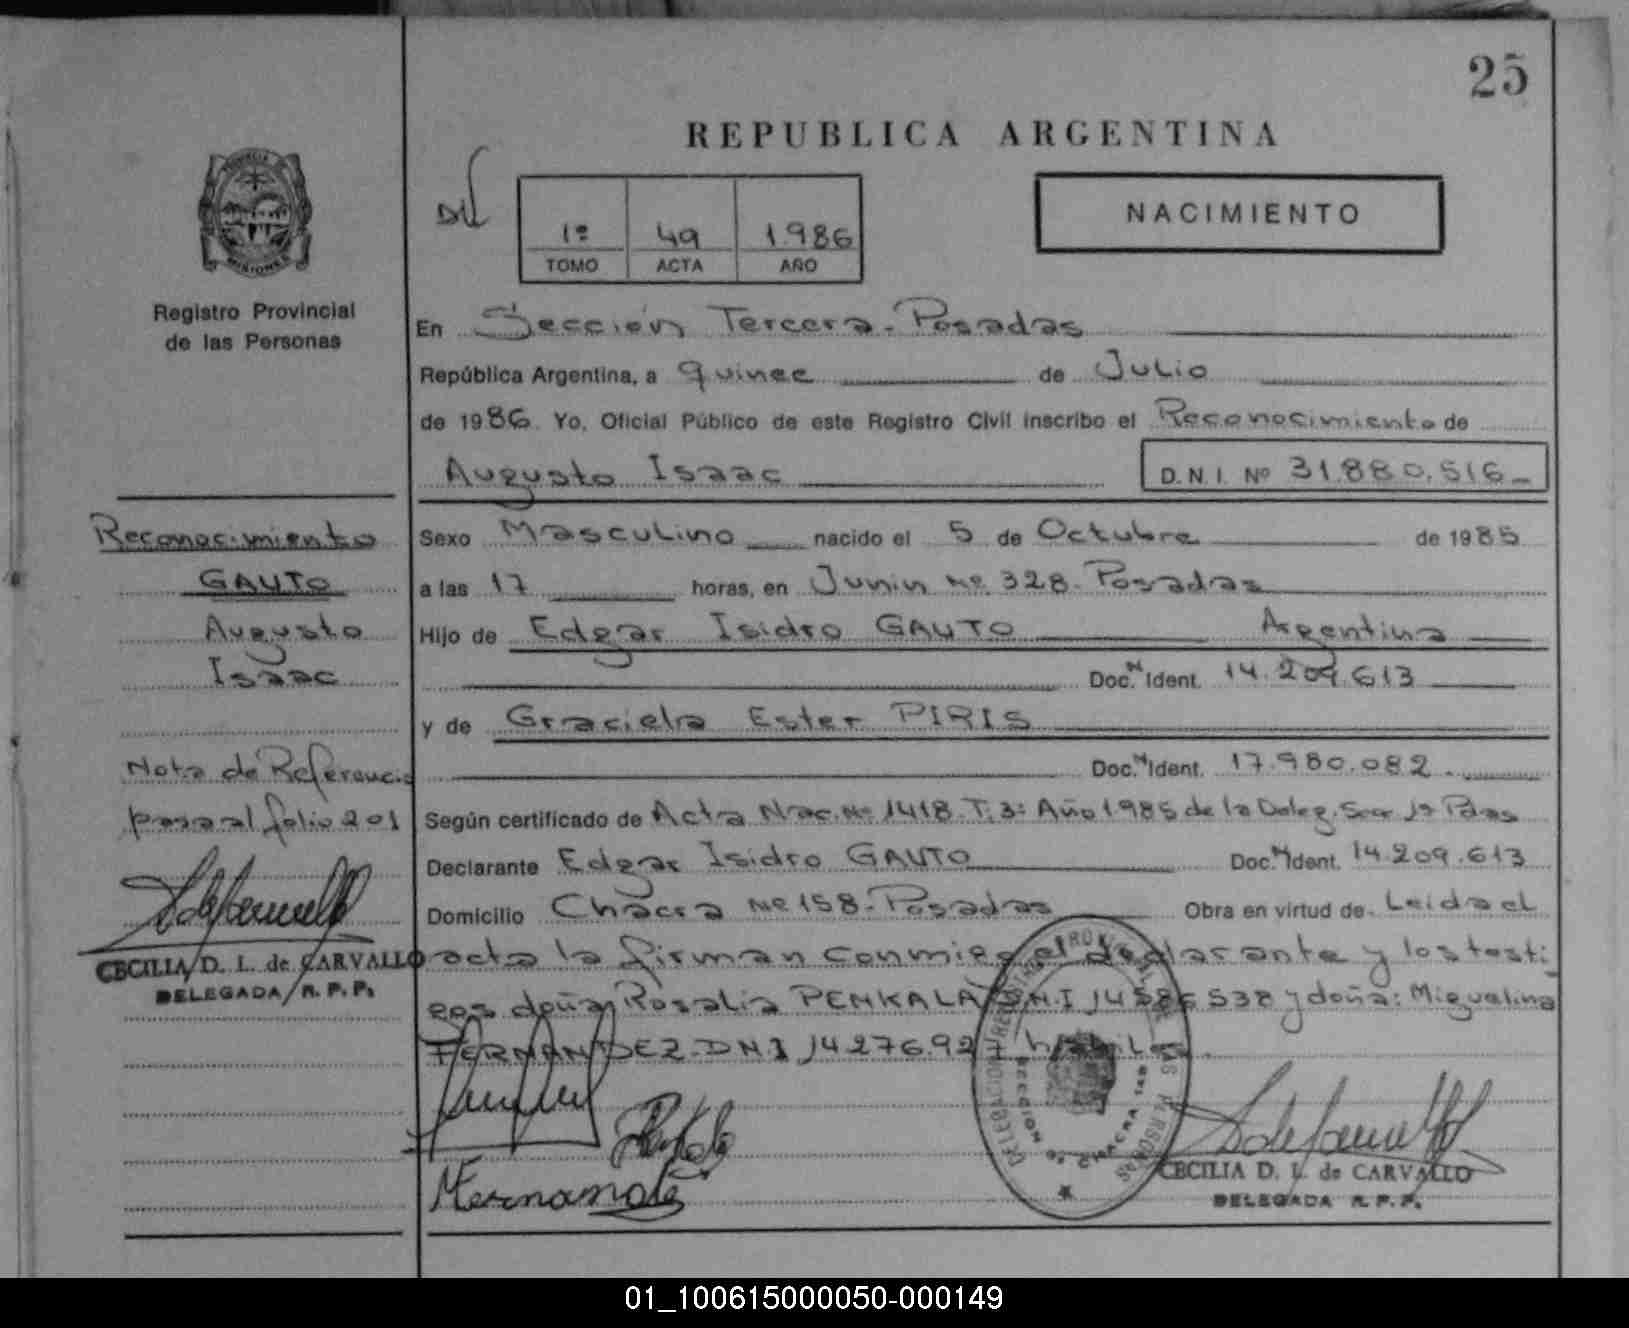 25
REPUBLICA ARGENTINA
PROVINCIA
MISIONES
Registro Provincial
de las Personas
1º 49 1.986
TOMO ACTA AÑO
NACIMIENTO
En Sección Tercera - Posadas
República Argentina, a quince de Julio
de 1986. Yo, Oficial Público de este Registro Civil inscribo el Reconocimiento de
Augusto Isaac D.N.I. Nº 31.880.516
Reconocimiento
GAUTO
Augusto
Isaac
Nota de Referencia
pasa al folio 201
CECILIA D. L. de CARVALLO
DELEGADA R. P. P.
Sexo Masculino nacido el 5 de Octubre de 1985
a las 17 horas, en Junin Nº 328. Posadas
Hijo de Edgar Isidro GAUTO Argentina
Doc. N Ident. 14.209.613
y de Graciela Ester PIRIS
Doc. N Ident. 17.980.082.
Según certificado de Acta Nac. Nº 1418. T. 3º Año 1985 de la Deleg. Secc 1ª Pdas
Declarante Edgar Isidro GAUTO Doc. N Ident. 14.209.613
Domicilio Chacra Nº 158 - Posadas Obra en virtud de Leida el
acta la firman conmigo el declarante y los testi
gos doña Rosalia PENKALA D.N.I 14586538 y doña: Miguelina
FERNANDEZ. D.N.I 1427692 habiles.
DELEGACION REGISTRO PROVINCIAL DE LAS PERSONAS
SECCION CHACRA
CECILIA D. L. de CARVALLO
DELEGADA R. P. P.
01_100615000050-000149